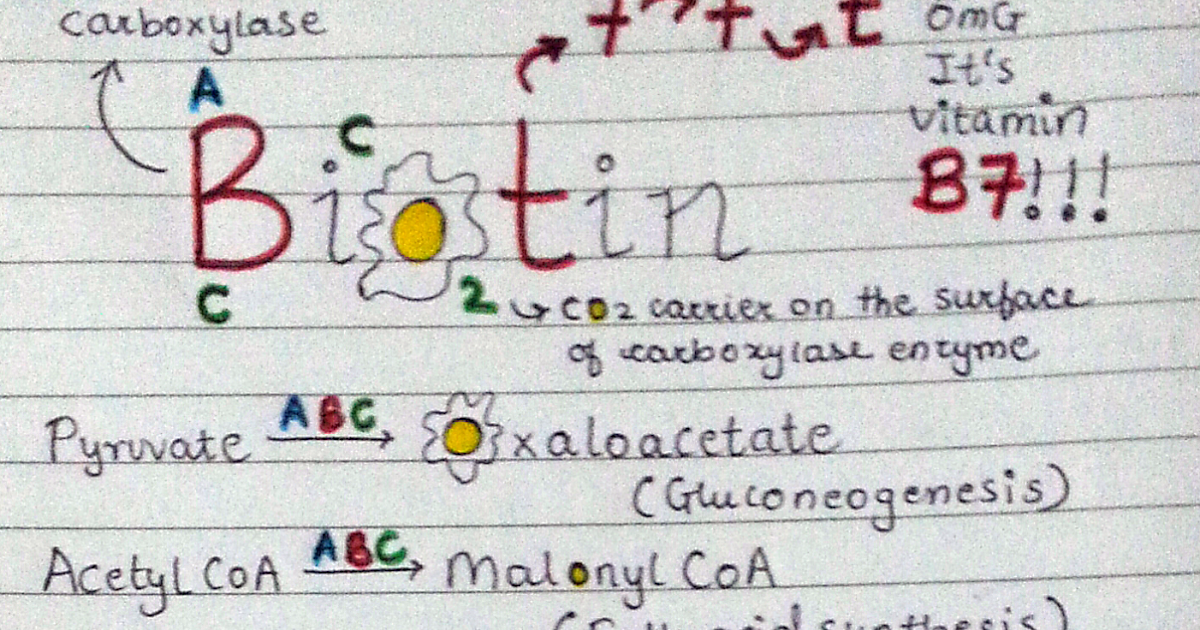 carboxylase
OmG
It's
vitamin
B7!!!
A
C
Biotin
C
2 CO2 carrier on the surface
of carboxylase enzyme
Pyruvate ABC Oxaloacetate
(Gluconeogenesis)
Acetyl CoA ABC Malonyl CoA
synthesis)